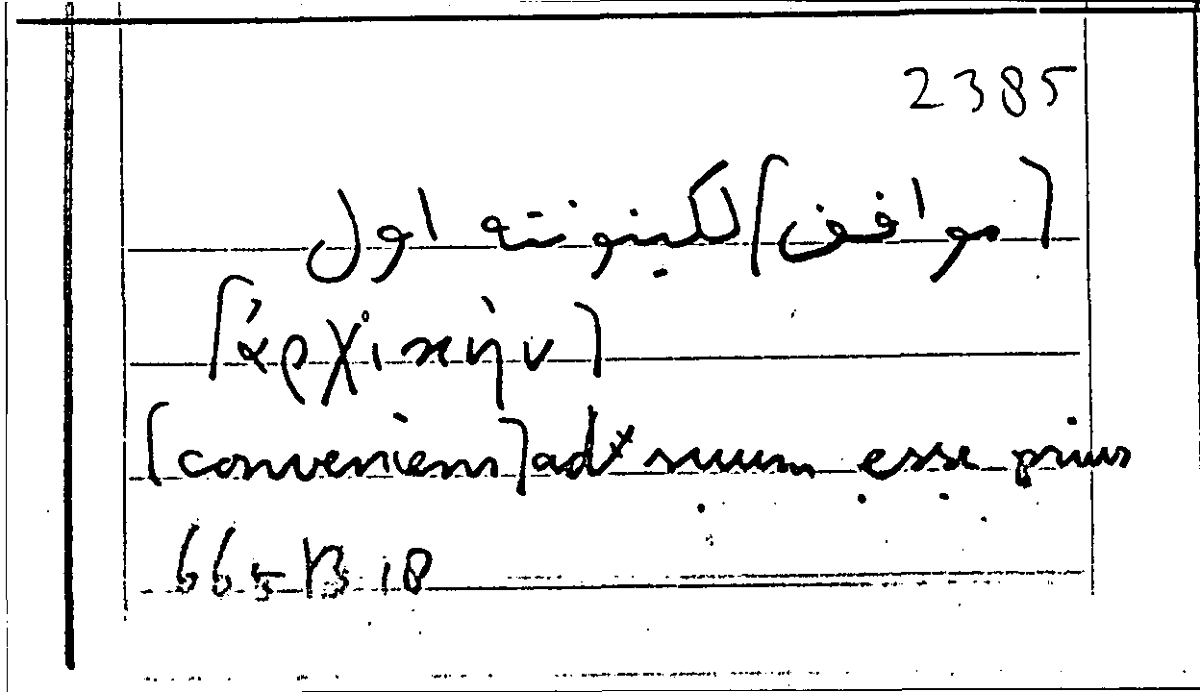 2385
[موافق] لكينونته اول
[ἀρχικὴν]
[conveniens] ad suum esse prius
665 B 18